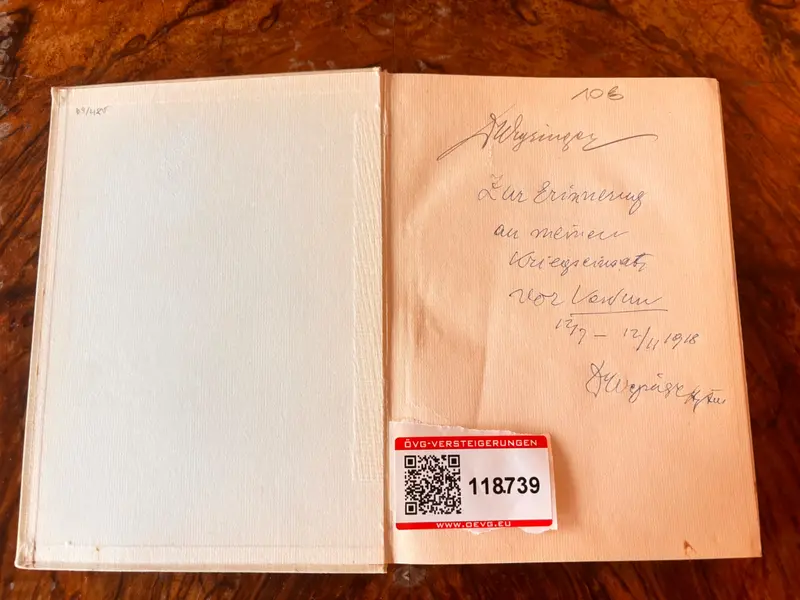 10€
Zur Erinnerung
an meinen
Kriegseinsatz
vor Verdun
12/9 - 12/11 1918
ÖVG-VERSTEIGERUNGEN
118.739
WWW.OEVG.EU